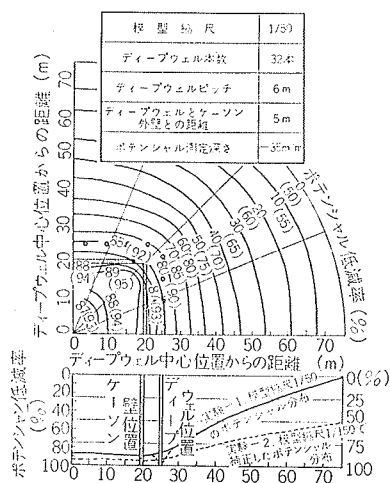 模型縮尺 1/50
ディープウェル本数 32本
ディープウェルピッチ 6m
ディープウェルとケーソン外壁との距離 5m
ポテンシャル測定深さ −35m
ディープウェル中心位置からの距離 (m)
70
60
50
40
30
20
10
0
ポテンシャル低減率 (%)
(50)
10(55)
20
(60)
30
(65)
40(70)
50(75)
60(80)
70(85)
80
(90)
85
(92)
88
(94)
89
(95)
88(94)
87(93)
0 10 20 30 40 50 60 70
ディープウェル中心位置からの距離 (m)
ポテンシャル低減率 (%)
0
20
40
60
80
100
ケーソン壁位置
ディープウェル位置
実験−1 模型縮尺1/50のポテンシャル分布
実験−2 模型縮尺1/50で補正したポテンシャル分布
0(%)
25
50
75
100